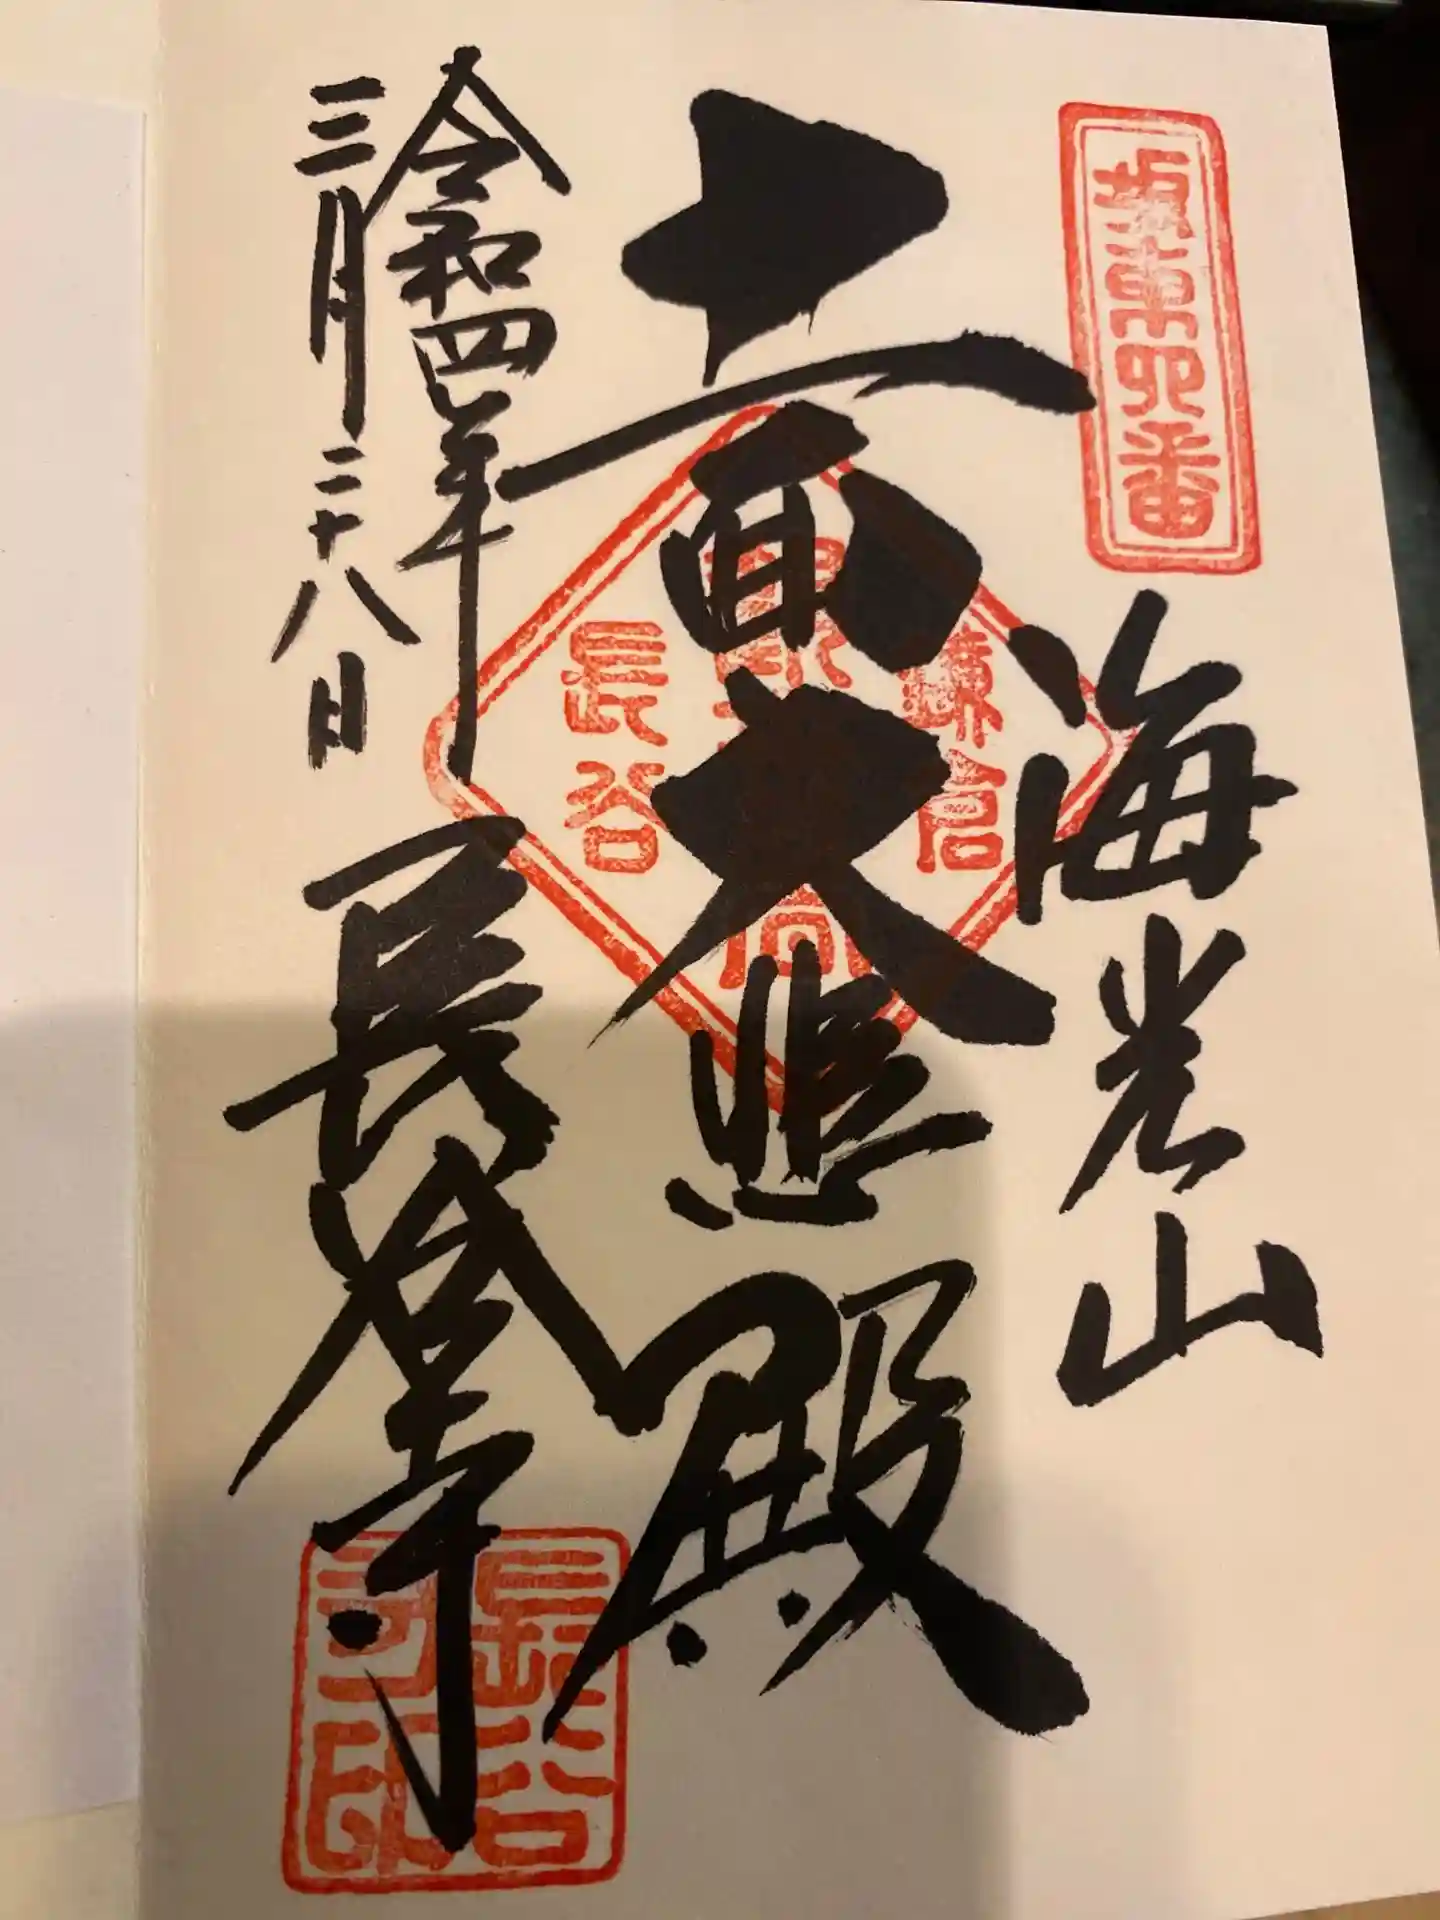 坂東四番
海光山
十一面大悲殿
鎌倉
長谷
令和四年
三月二十八日
長谷寺
長谷
寺印